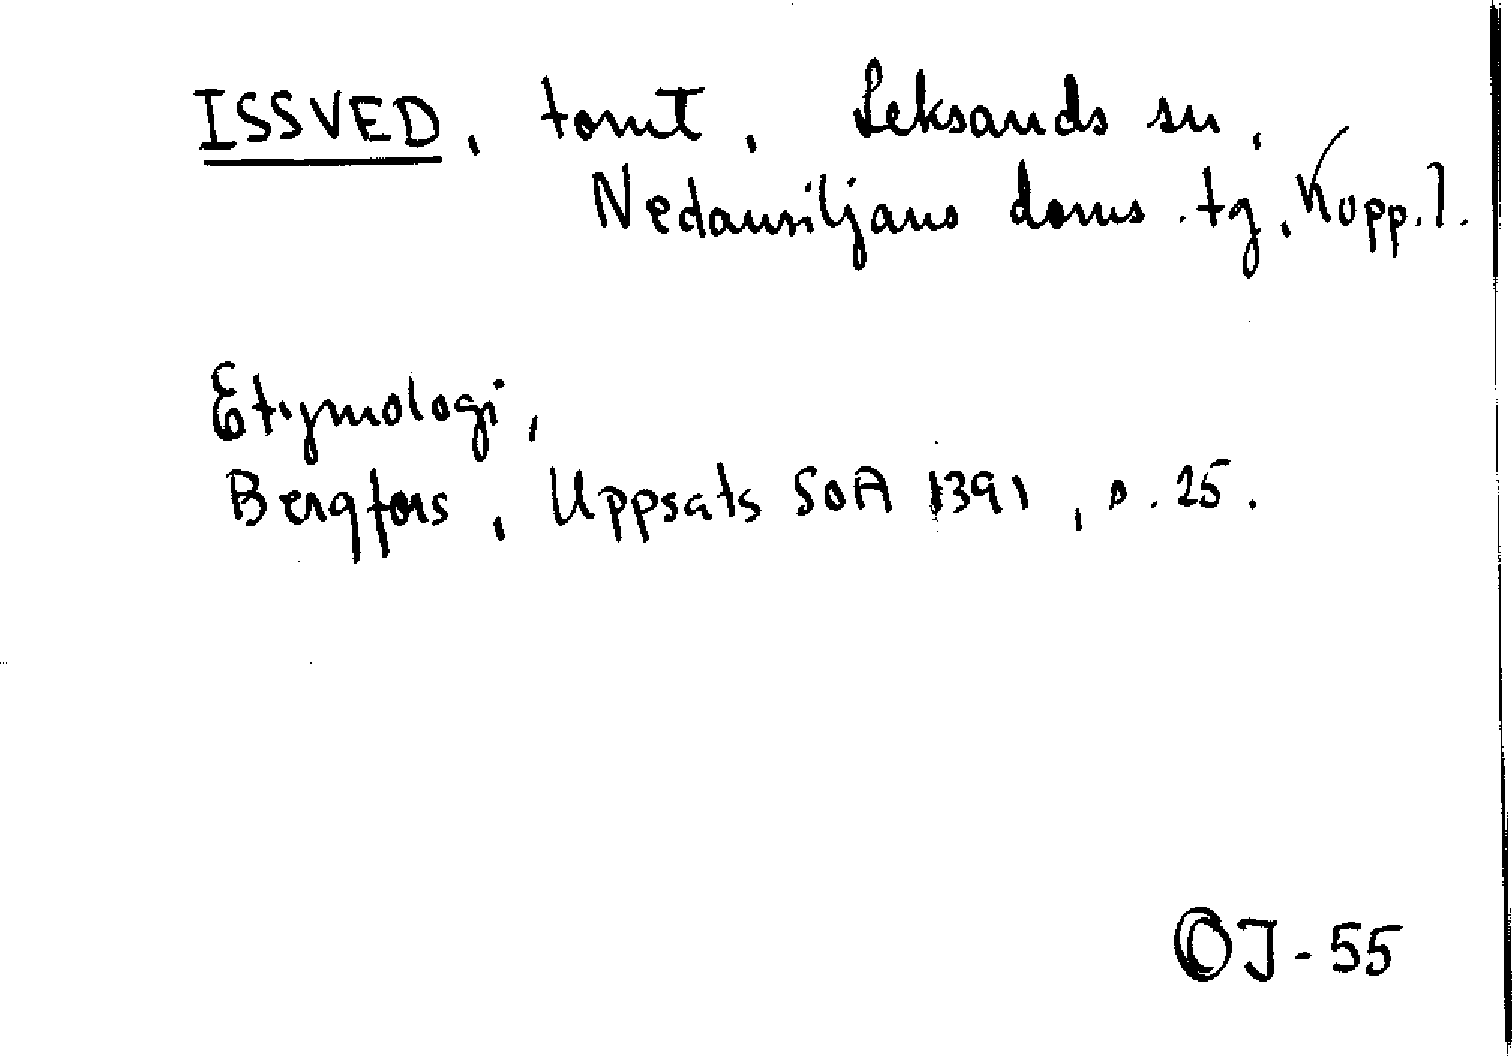 ISSVED, tomt, Leksands sn,
Nedansiljans doms. tg, Kopp. l.
Etymologi,
Bergfors, Uppsats SOA 1391, s. 25.
OJ-55